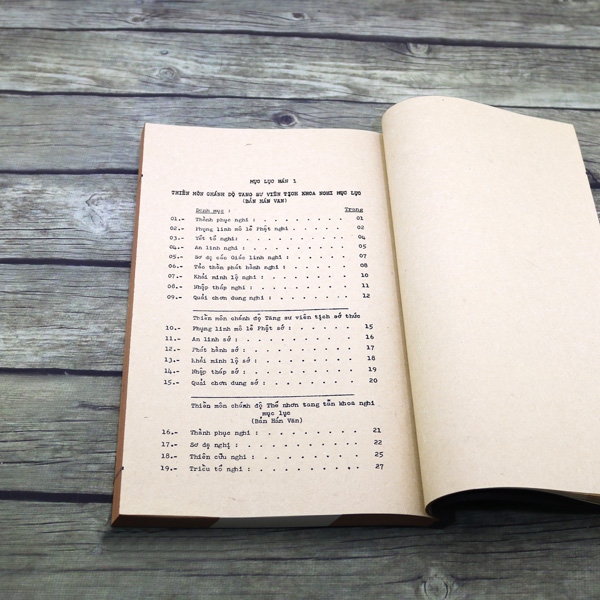 MỤC LỤC HÁN 1
THIỀN MÔN CHÁNH ĐỘ TANG SƯ VIÊN TỊCH KHOA NGHI MỤC LỤC
(BẢN HÁN VAN)
Danh mục : Trang
01.- Thành phục nghi : . . . . . . . . 01
02.- Phụng linh mô lễ Phật nghi . . . . . 02
03.- Tết tổ nghi: . . . . . . . . . 04
04.- An linh nghi : . . . . . . . . . 05
05.- Sơ dạ cáo Giác linh nghi : . . . . . 07
06.- Tảo thần phát hành nghi : . . . . . 08
07.- Khải minh lộ nghi : . . . . . . . 10
08.- Nhập tháp nghi : . . . . . . . . 11
09.- Quải chơn dung nghi : . . . . . . . 12
Thiền môn chánh độ Tăng sư viên tịch sớ thức
10.- Phụng linh mô lễ Phật sớ : . . . . . 15
11.- An linh sớ : . . . . . . . . . 16
12.- Phát hành sớ : . . . . . . . . 17
13.- Khải minh lộ sớ : . . . . . . . 18
14.- Nhập tháp sớ : . . . . . . . . 19
15.- Quải chơn dung sớ : . . . . . . . 20
Thiền môn chánh độ Thế nhơn tang tẩn khoa nghi
mục lục
(Bản Hán Văn)
16.- Thành phục nghi : . . . . . . . . 21
17.- Sơ dạ nghị : . . . . . . . . . 22
18.- Thiên cữu nghi : . . . . . . . . 25
19.- Triều tổ nghi : . . . . . . . . 27